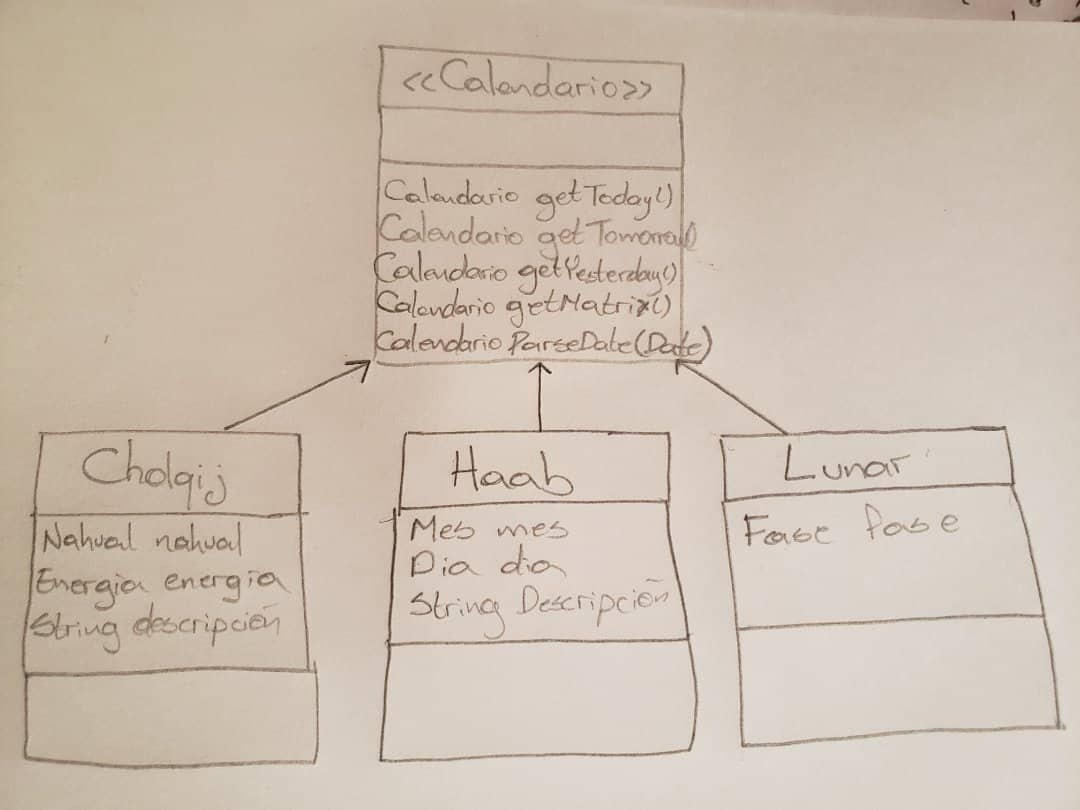 <<Calendario>>
Calendario getToday()
Calendario getTomorraw()
Calendario getYesterday()
Calendario getMatrix()
Calendario ParseDate(Date)
Cholqij
Nahual nahual
Energia energía
String descripción
Haab
Mes mes
Dia dia
String Descripción
Lunar
Fase fase